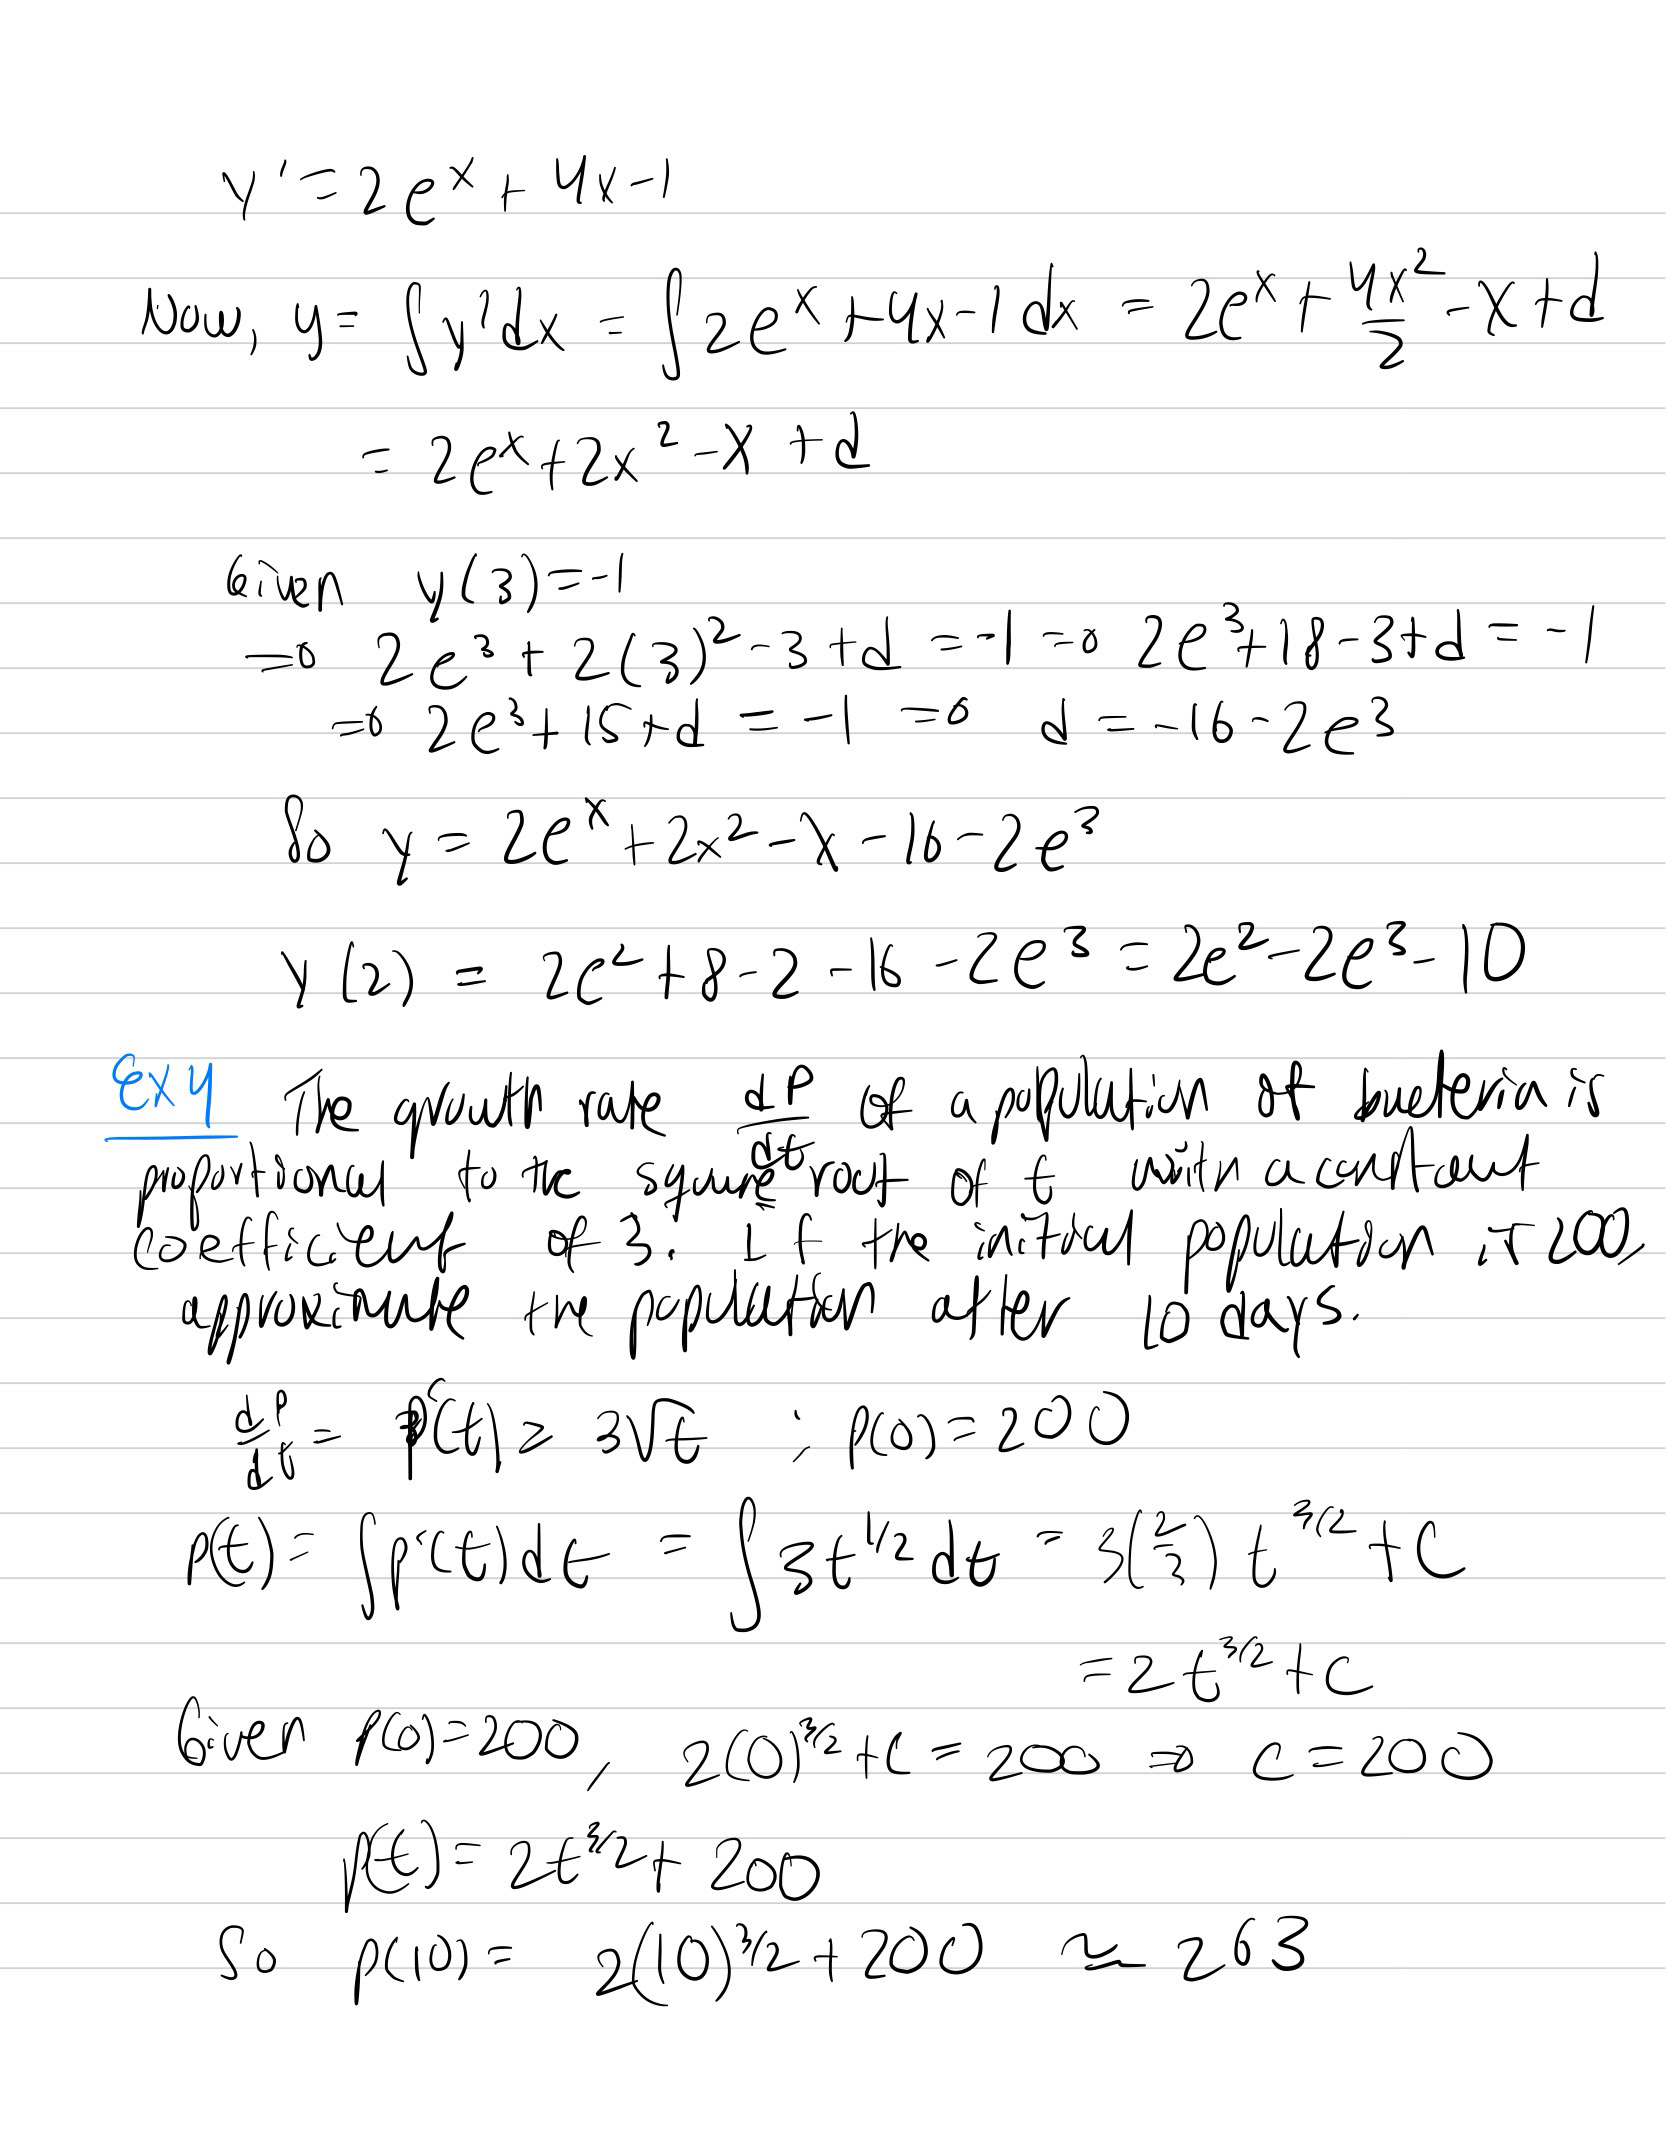 y' = 2e^x + 4x - 1
Now, y = ∫y'dx = ∫2e^x + 4x - 1 dx = 2e^x + 4x^2/2 - x + d
= 2e^x + 2x^2 - x + d
Given y(3) = -1
⇒ 2e^3 + 2(3)^2 - 3 + d = -1 ⇒ 2e^3 + 18 - 3 + d = -1
⇒ 2e^3 + 15 + d = -1 ⇒ d = -16 - 2e^3
So y = 2e^x + 2x^2 - x - 16 - 2e^3
y(2) = 2e^2 + 8 - 2 - 16 - 2e^3 = 2e^2 - 2e^3 - 10
Ex 4 The growth rate dP/dt of a population of bacteria is
proportional to the square root of t with a constant
coefficient of 3. If the initial population is 200,
approximate the population after 10 days.
dP/dt = P'(t) = 3√t ; P(0) = 200
P(t) = ∫P'(t)dt = ∫3t^1/2 dt = 3(2/3) t^3/2 + C
= 2t^3/2 + C
Given P(0) = 200, 2(0)^3/2 + C = 200 ⇒ C = 200
P(t) = 2t^3/2 + 200
So P(10) = 2(10)^3/2 + 200 ≈ 263